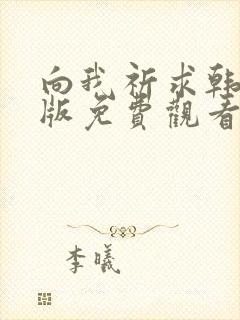 向我祈求韩
版免費觀看
李曦